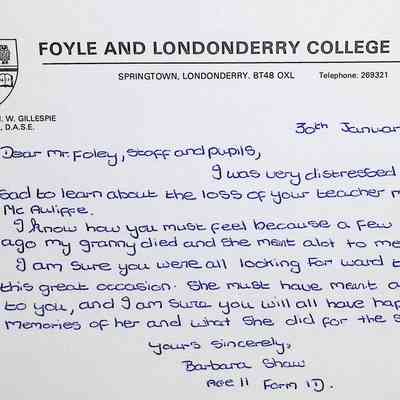 FOYLE AND LONDONDERRY COLLEGE
SPRINGTOWN, LONDONDERRY. BT48 OXL Telephone: 269321
W. GILLESPIE
D.A.S.E.
30th Januar
Dear Mr. Foley, staff and pupils,
I was very distressed
sad to learn about the loss of your teacher m
Mc Auliffe.
I know how you must feel because a few
ago my granny died and she ment alot to me
I am sure you were all looking for ward t
this great occasion. She must have ment a
to you, and I am sure you will all have hap
memories of her and what she did for the s
Yours sincerely,
Barbara Shaw
Age 11 Form 1D.